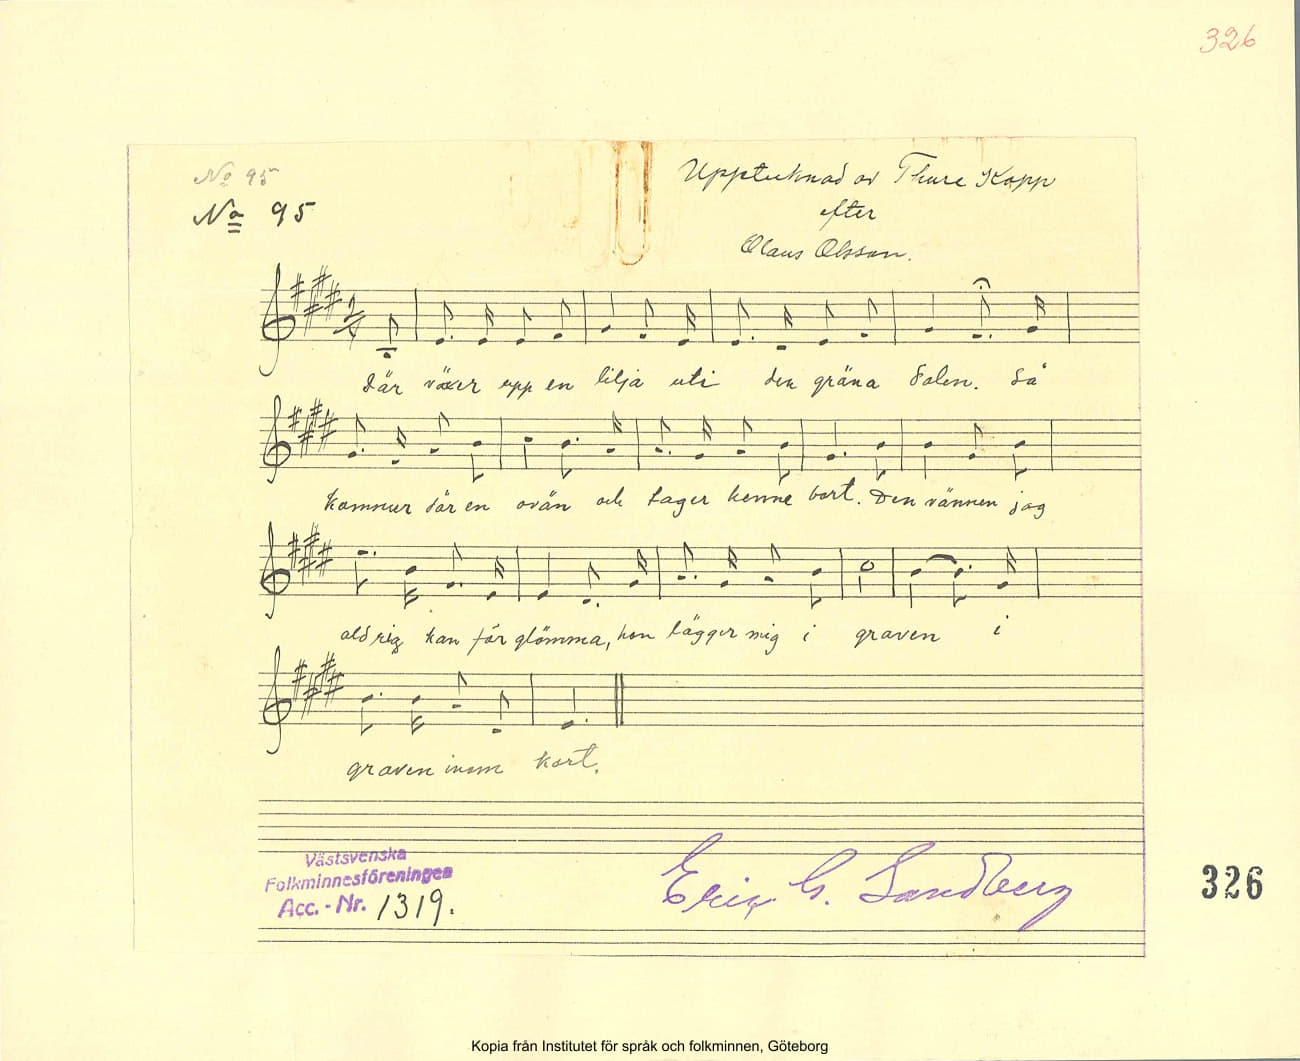 326
No 95
No 95
Upptecknad av Thure Kopp
efter
Olaus Olsson.
2/4
Där växer upp en lilja uti den gröna dalen. Så
kommer där en ovän och tager henne bort. Den vännen jag
aldrig kan för glömma, hon lägger mig i graven i
graven inom kort.
Västsvenska
Folkminnesföreningen
Acc.-Nr. 1319.
Erik G. Sandberg
326
Kopia från Institutet för språk och folkminnen, Göteborg